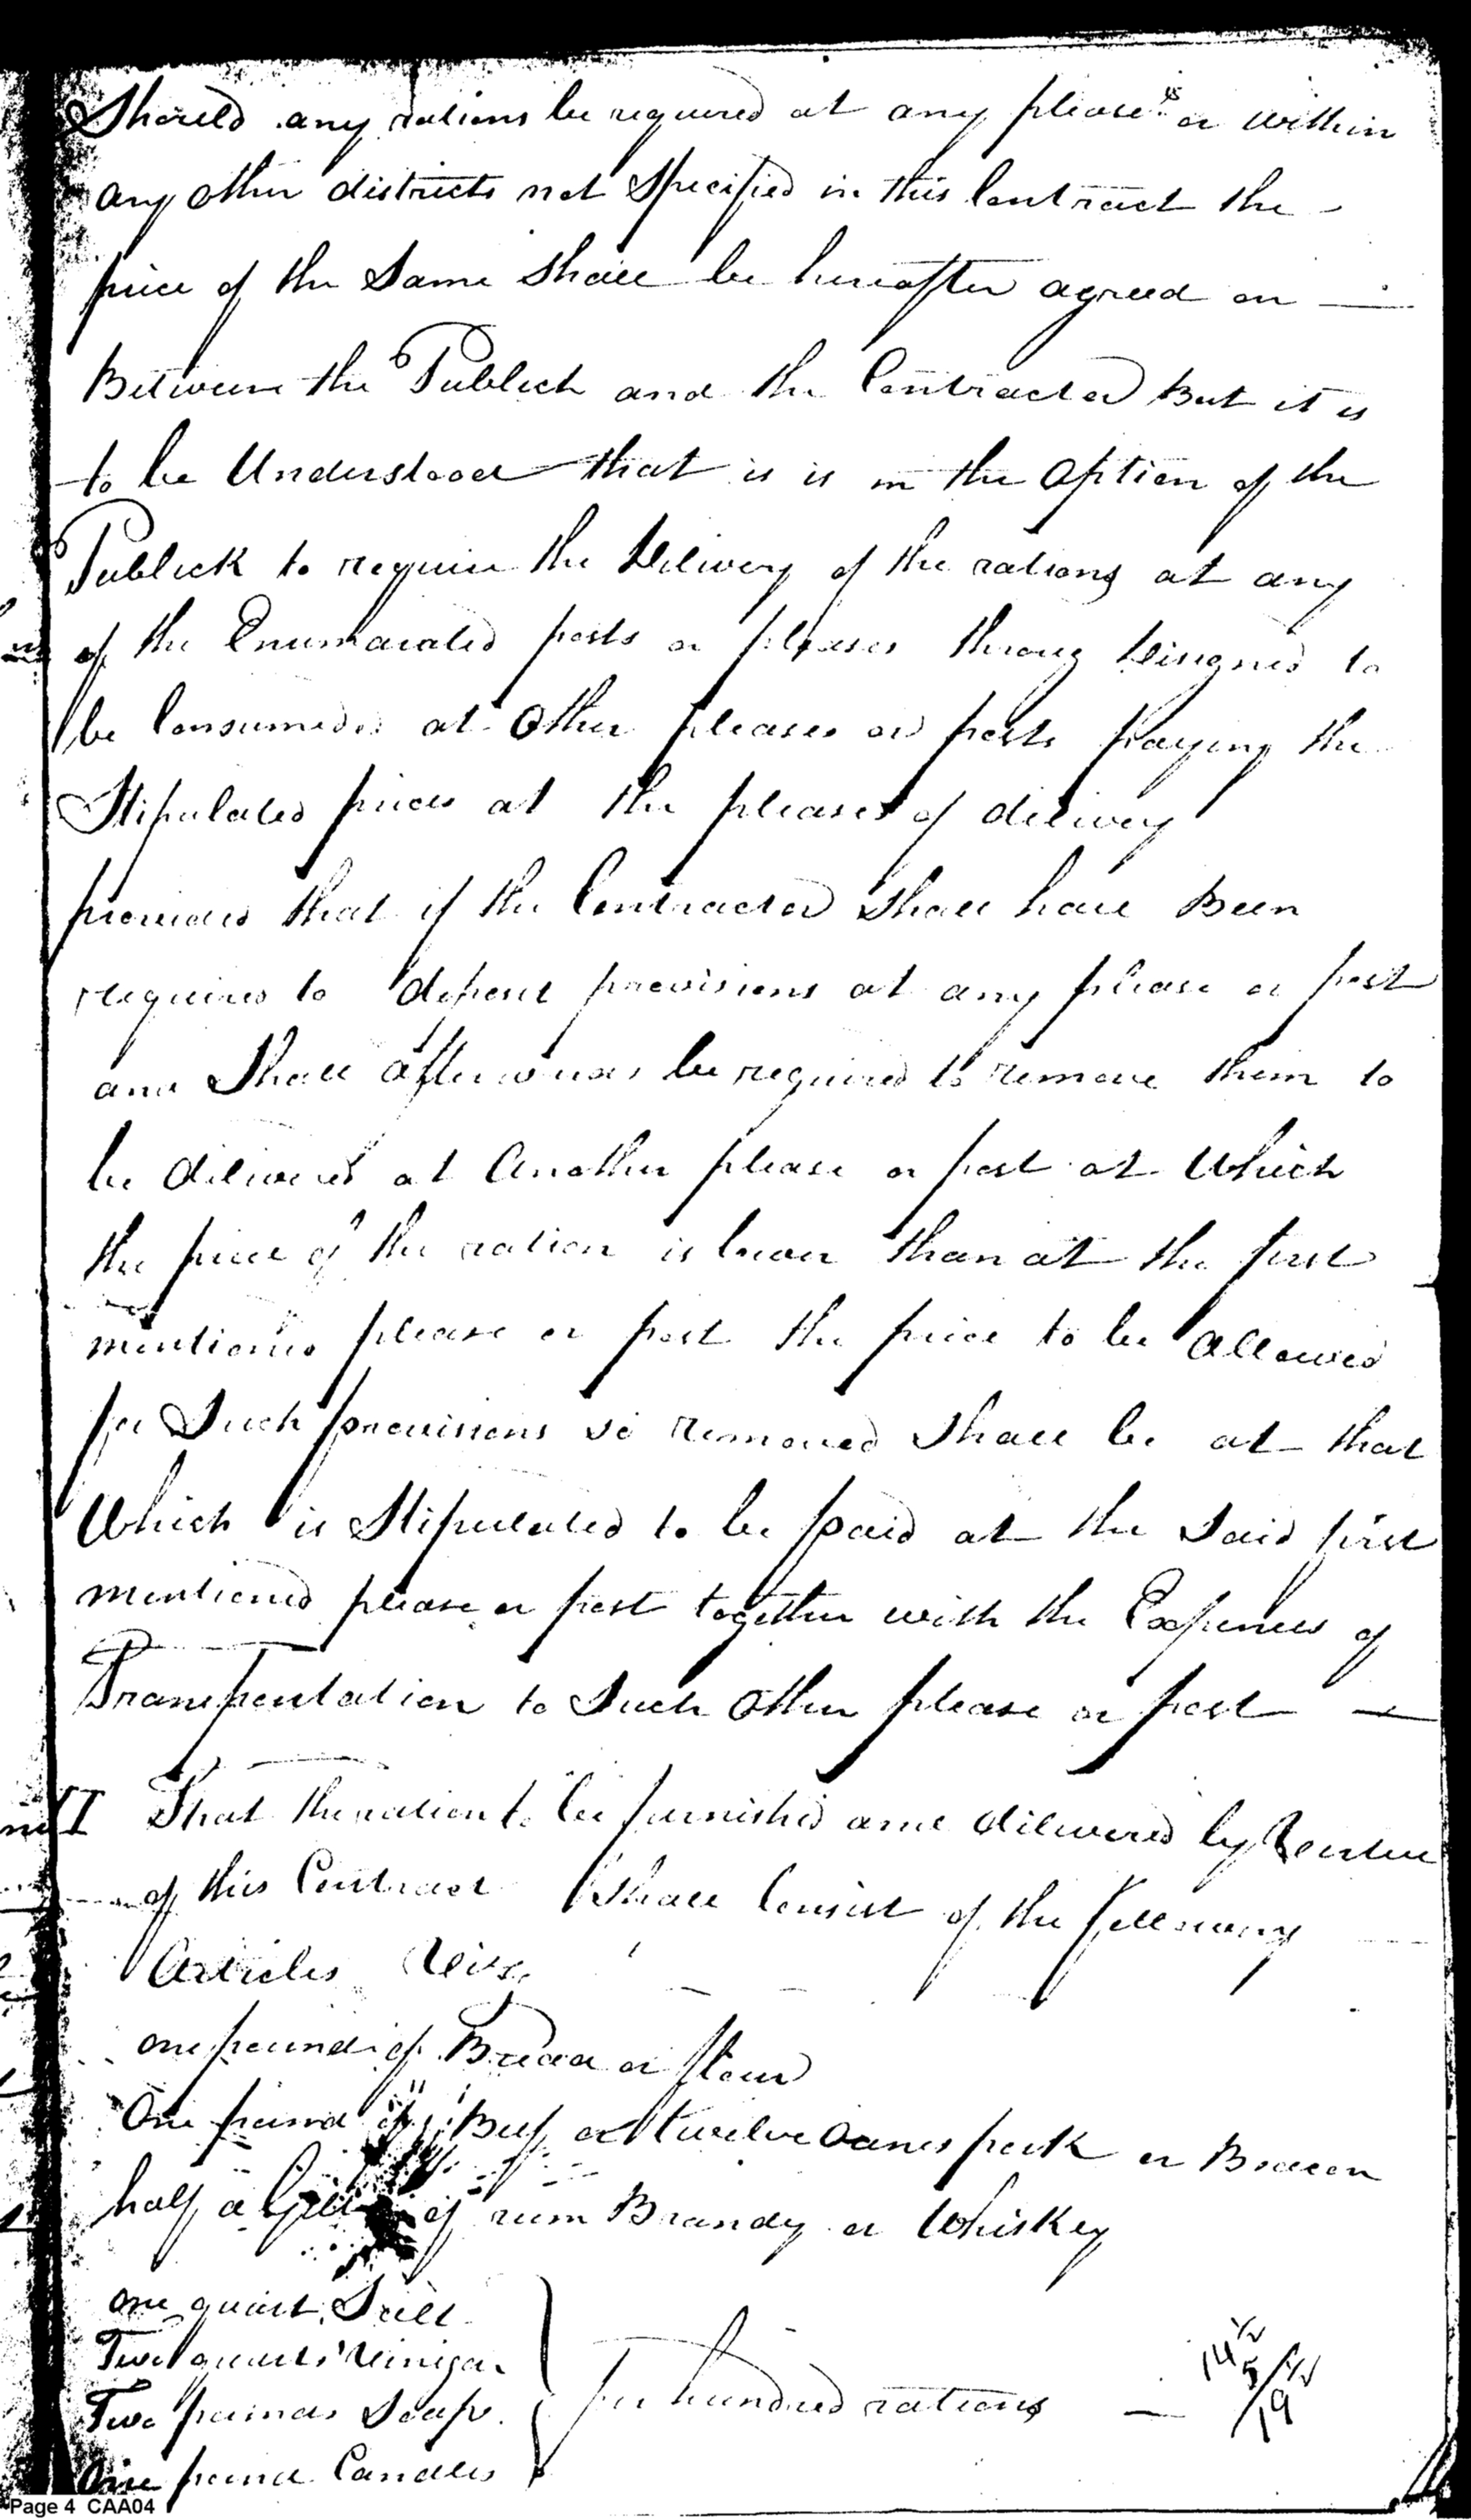 Should any rations be required at any please's or within
any other districts not Specified in this Contract the
price of the Same Shall be hereafter agreed on
Between the Publick and the Contractor But it is
to be Understood that is is in the Option of the
Publick to require the Delivery of the rations at any
of the Enumarated posts or pleases throug designed to
be Consumed at Other pleases or posts paying the
Stipulated prices at the pleases of dilivery
provided that if the Contractor Shall have Been
required to deposit provisions at any please or post
and Shall afterwards be required to remove them to
be delivered at Another please or post at Which
the price of the ration is lower than at the first
mentioned please or post the price to be Allowed
for Such provisions so removed Shall be at that
Which is Stipulated to be paid at the Said first
mentioned please or post together with the Expences of
Transportation to Such Other please or post
II That the ration to be furnished and dilivered by Vertue
of this Contract Shall Consist of the following
Articles Viz
one pound of Bread or flour
One pound of Beef or twelve Ounes pork or Beacon
half a Gill of rum Brandy or Whiskey
one quart Salt
Two quarts Vinigar
Two pounds Soap
pr hundred rations
14 1/2
5 1/2
19
One pound Candles
Page 4 CAA04